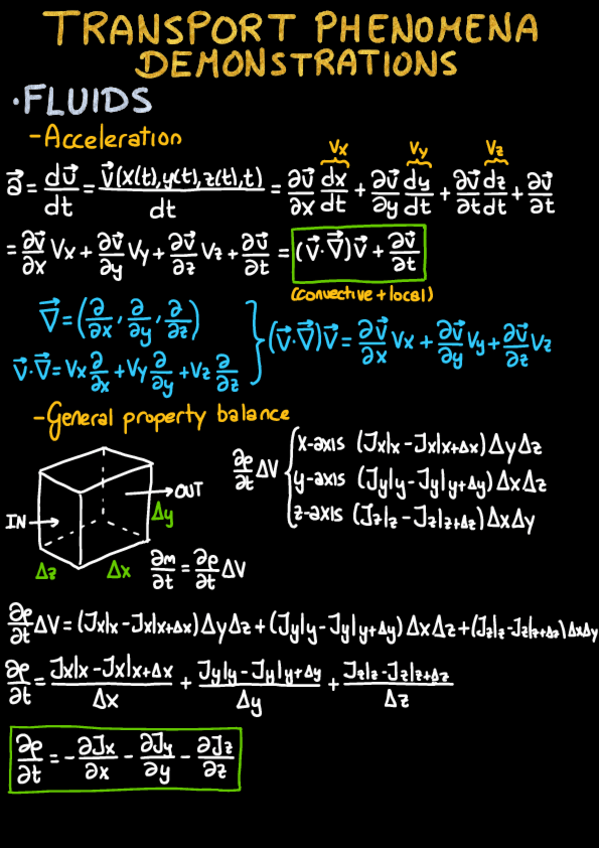 TRANSPORT PHENOMENA
DEMONSTRATIONS
·FLUIDS
-Acceleration
Vx Vy Vz
a⃗ = dv⃗/dt = v⃗(x(t),y(t),z(t),t)/dt = ∂v⃗/∂x dx/dt + ∂v⃗/∂y dy/dt + ∂v⃗/∂t dz/dt + ∂v⃗/∂t
= ∂v⃗/∂x Vx + ∂v⃗/∂y Vy + ∂v⃗/∂z Vz + ∂v⃗/∂t = (v⃗·∇⃗)v⃗ + ∂v⃗/∂t
(convective + local)
∇⃗ = (∂/∂x, ∂/∂y, ∂/∂z)
v⃗·∇⃗ = Vx ∂/∂x + Vy ∂/∂y + Vz ∂/∂z } (v⃗·∇⃗)v⃗ = ∂v⃗/∂x Vx + ∂v⃗/∂y Vy + ∂v⃗/∂z Vz
-General property balance
IN → → OUT
Δy
Δz Δx
∂m/∂t = ∂ρ/∂t ΔV
∂ρ/∂t ΔV {
x-axis (Jx|x - Jx|x+Δx) Δy Δz
y-axis (Jy|y - Jy|y+Δy) Δx Δz
z-axis (Jz|z - Jz|z+Δz) Δx Δy
∂ρ/∂t ΔV = (Jx|x - Jx|x+Δx) Δy Δz + (Jy|y - Jy|y+Δy) Δx Δz + (Jz|z - Jz|z+Δz) Δx Δy
∂ρ/∂t = Jx|x - Jx|x+Δx / Δx + Jy|y - Jy|y+Δy / Δy + Jz|z - Jz|z+Δz / Δz
∂ρ/∂t = - ∂Jx/∂x - ∂Jy/∂y - ∂Jz/∂z